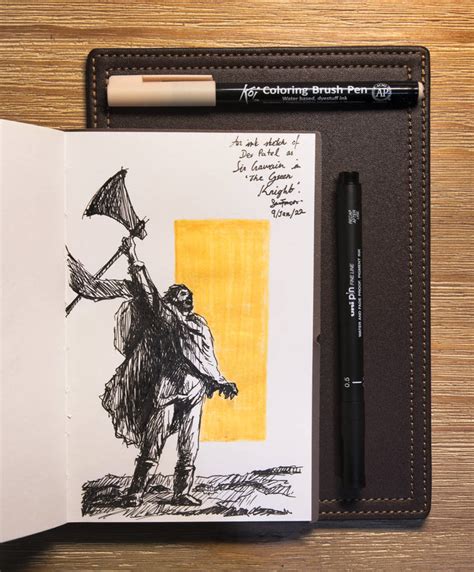 Koi Coloring Brush Pen
Water based, dyestuff ink
AP
An ink sketch of
Dev Patel as
Sir Gawain in
"The Green
Knight".
9/Jan/22
uni pin FINE LINE
WATER AND FADE PROOF, PIGMENT INK
0.5